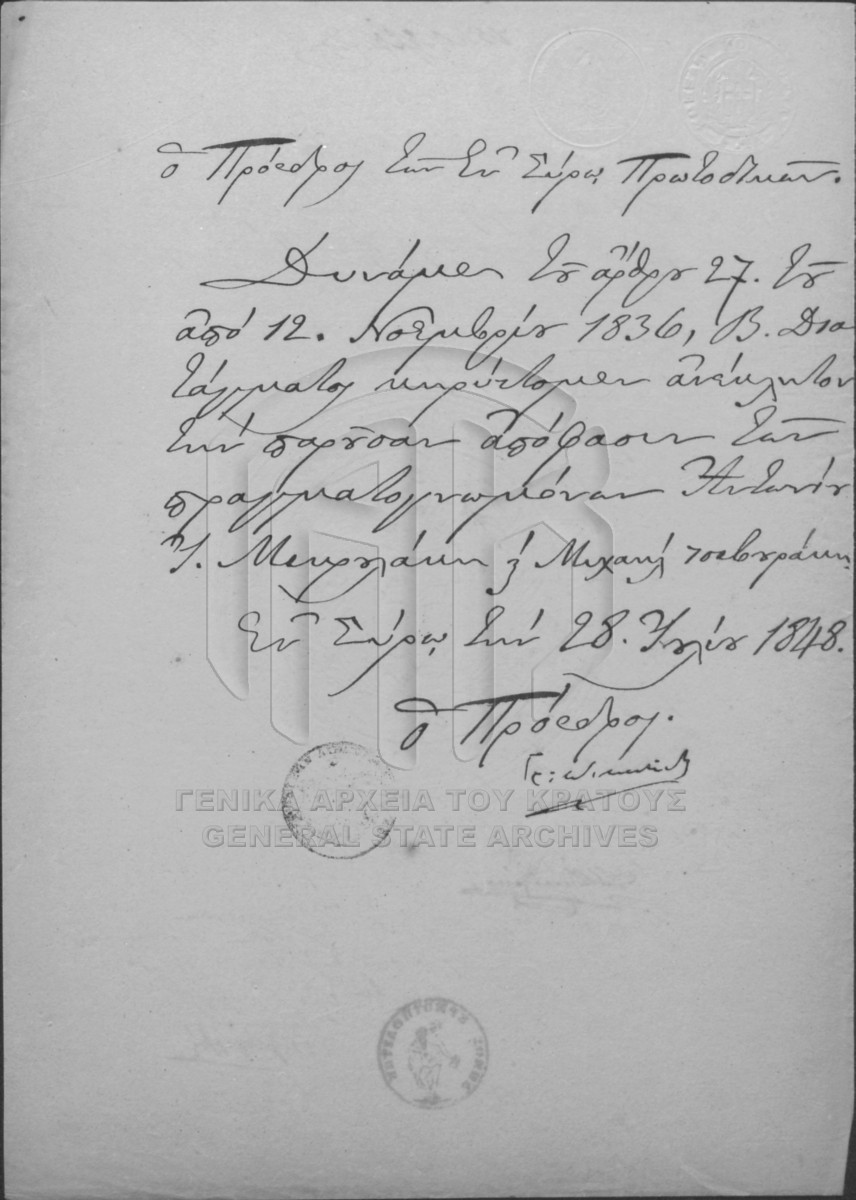 ὁ Πρόεδρος τῶν ἐν Σύρῳ Πρωτοδικῶν.
Δυνάμει τοῦ ἄρθρου 27. τοῦ
ἀπό 12. Νοεμβρίου 1836, Β. Δια
τάγματος κηρύττομεν ἀνέκλητον
τήν παροῦσαν ἀπόφασιν τῶν
πραγματογνωμόνων Ἀντωνίου
Ἐν Σύρῳ τήν 28. Ἰουλίου 1848.
ὁ Πρόεδρος.
ΓΕΝΙΚΑ ΑΡΧΕΙΑ ΤΟΥ ΚΡΑΤΟΥΣ
GENERAL STATE ARCHIVES